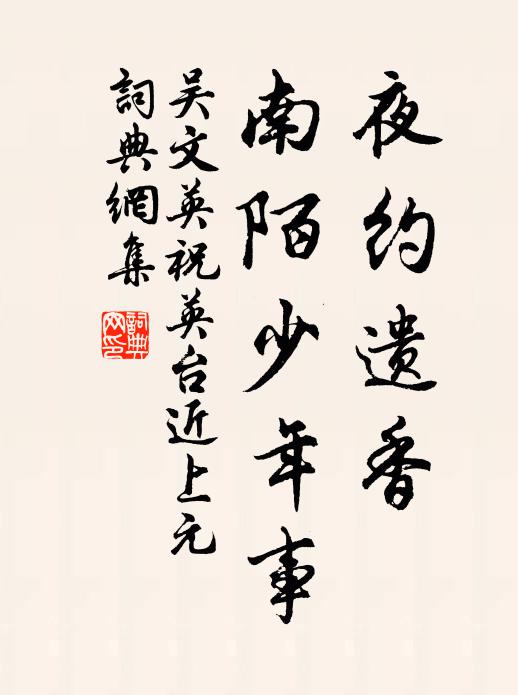 夜约遗香
南陌少年事
吴文英祝英台近上元
詞典網集
詞典
网印